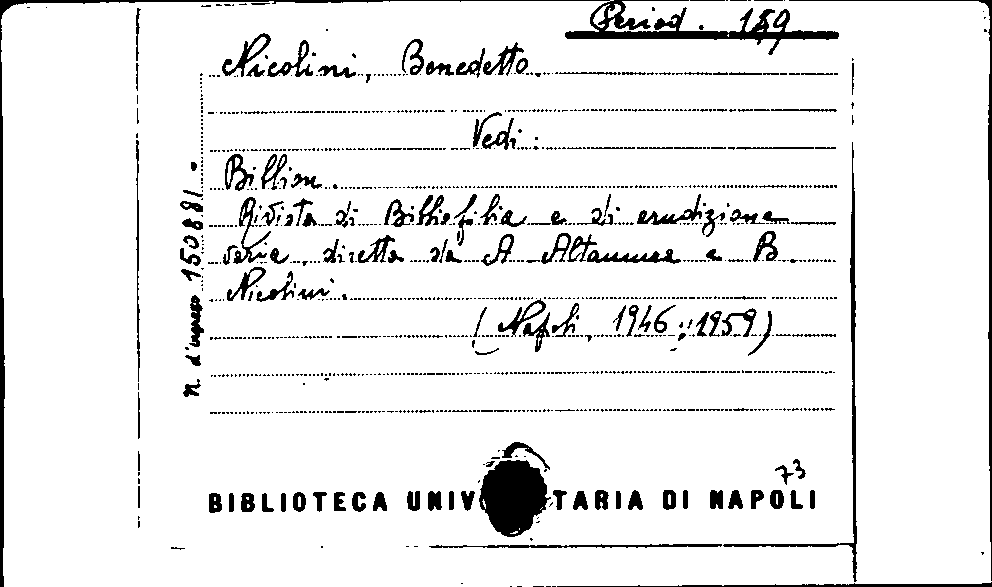 Period. 159
Nicolini, Benedetto.
Vedi:
Biblion.
Rivista di Bibliofilia e di erudizione
varia, diretta da A Altamura e B.
Nicolini.
(Napoli, 1946; 1959)
N. d'ingresso 150881.
73
BIBLIOTECA UNIV TARIA DI NAPOLI